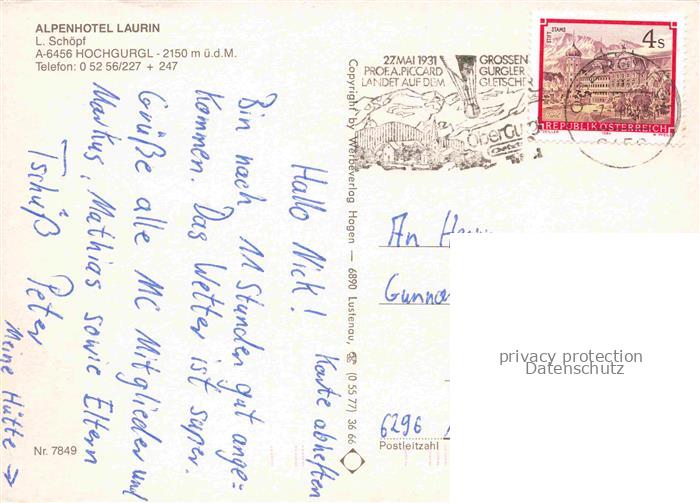 ALPENHOTEL LAURIN
L. Schöpf
A-6456 HOCHGURGL - 2150 m ü.d.M.
Telefon: 0 52 56/227 + 247
27.MAI 1931
PROF.A.PICCARD
LANDET AUF DEM
GROSSEN
GURGLER
GLETSCHER
STIFT STAMS
4 S
REPUBLIK ÖSTERREICH
Hallo Nick!
Karte abheften
Bin nach 11 Stunden gut ange=
kommen. Das Wetter ist super.
Grüße alle MC Mitglieder und
Markus, Mathias sowie Eltern
Tschüß Peter
Meine Hütte →
Copyright by Werbeverlag Hagen — 6890 Lustenau, ☎ (0 55 77) 36 66
An
6296
Postleitzahl
Nr. 7849
privacy protection
Datenschutz